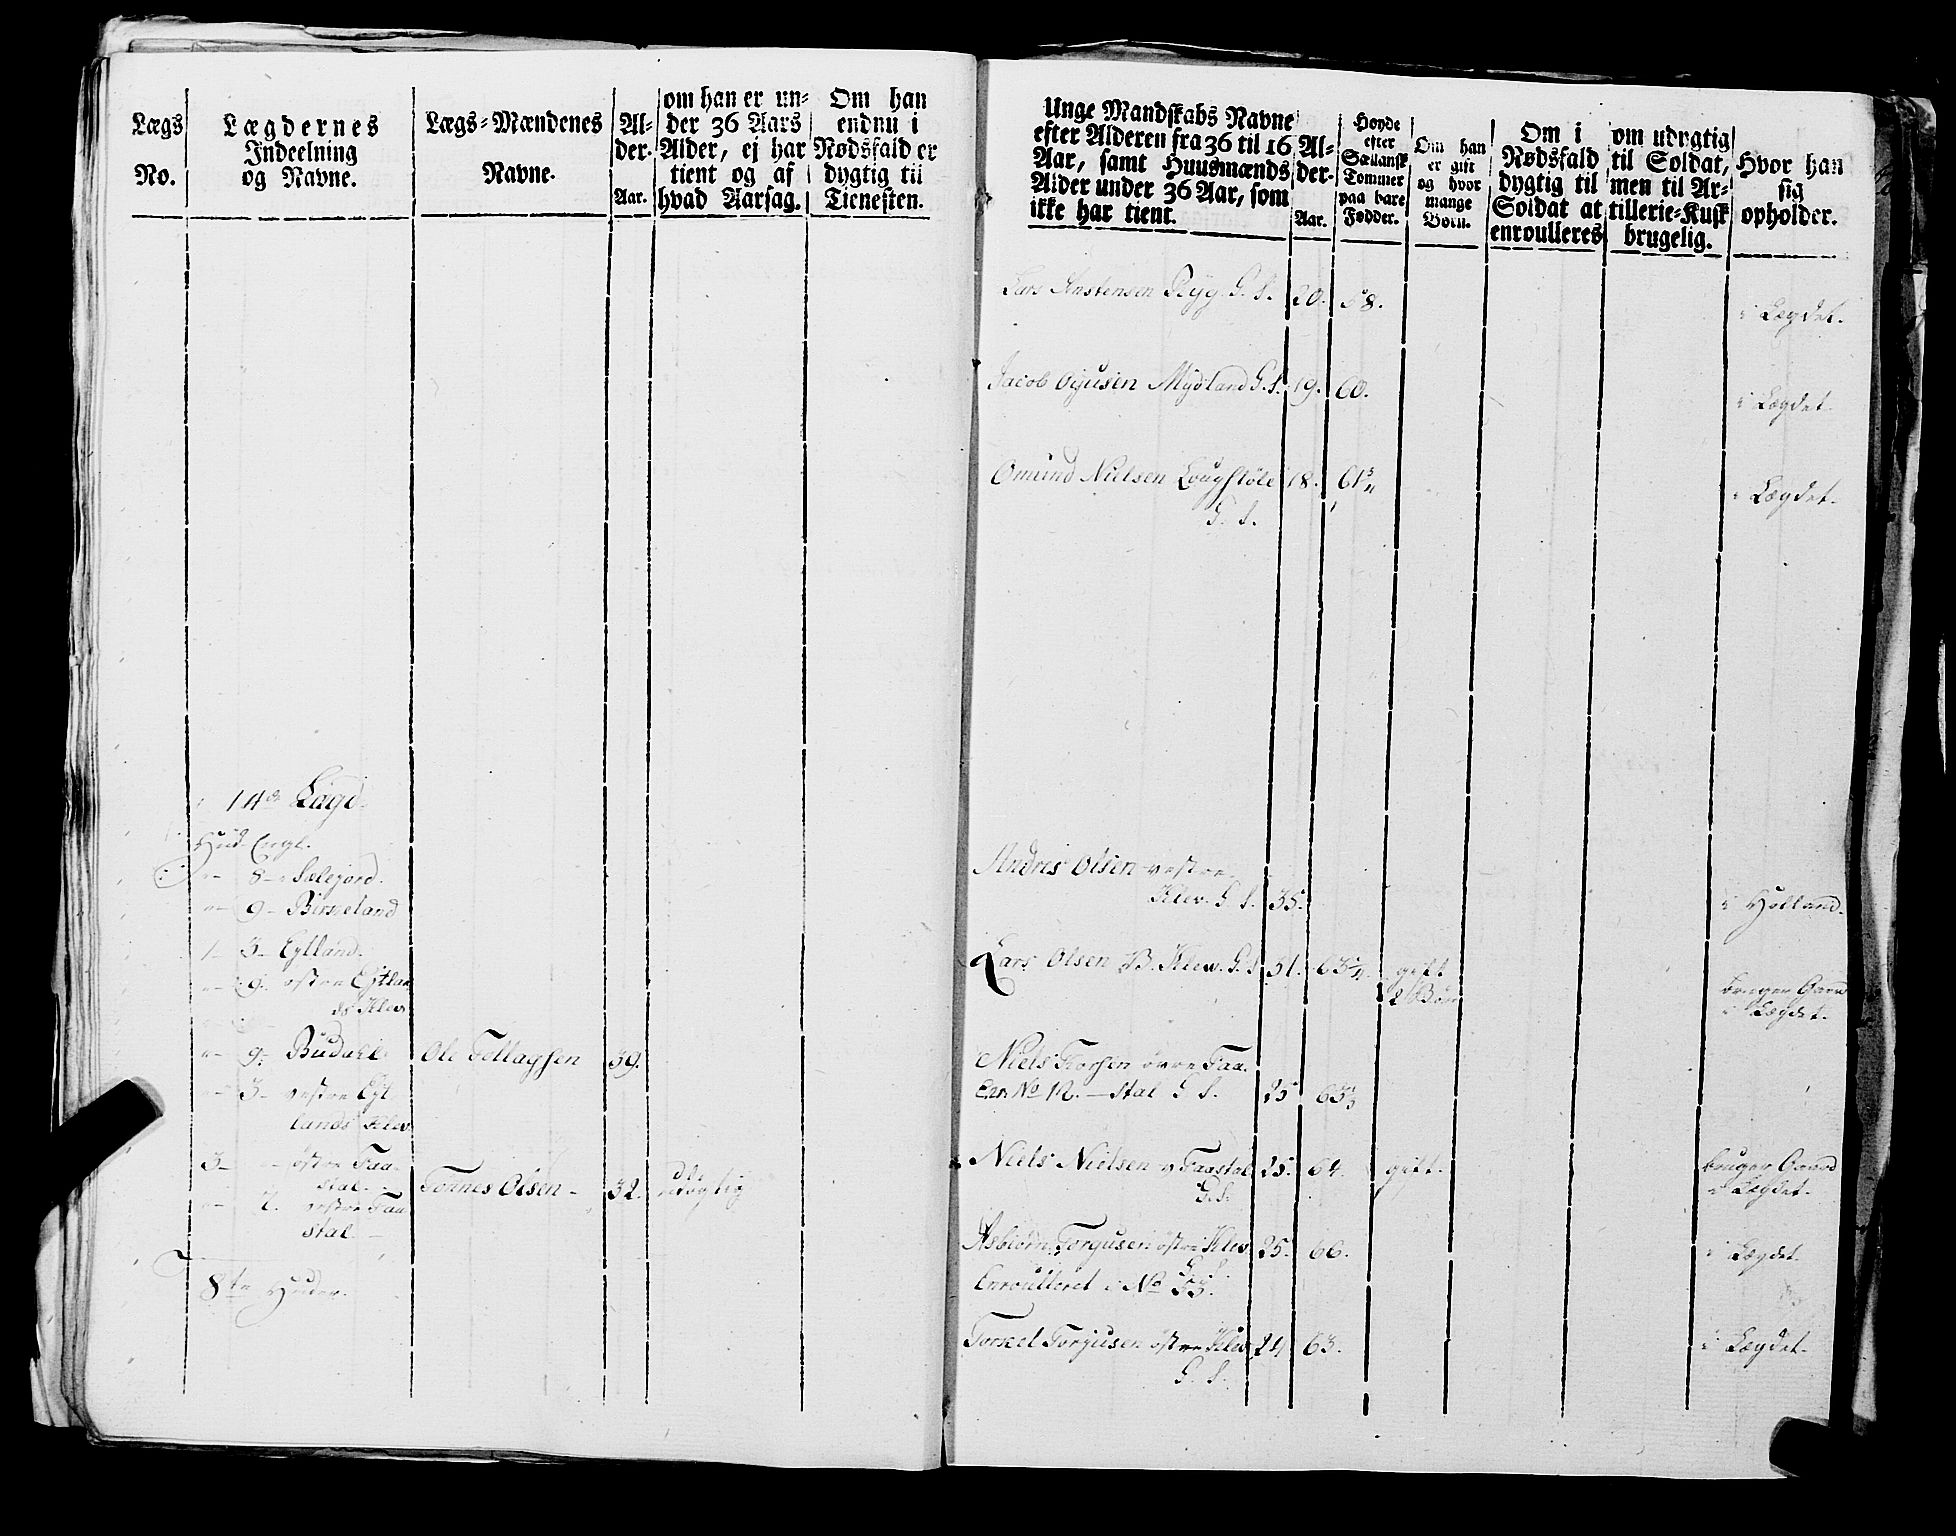 Lægs
No.
Lægdernes
Indeelning
og Navne.
Lægs-Mændenes
Navne.
Al-
der.
Aar.
om han er un-
der 36 Aars
Alder, ej har
tient og af
hvad Aarsag.
Om han
endnu i
Nødsfald er
dygtig til
Tienesten.
14de Lægd
Hud Engl.
" 8 - Sælejord.
" 9 - Birkeland
1 - 3 - Egtland.
" 9. østre Egtlan
ds Klev
" 9. Budahl Ole Tollagsen 39.
" 3 - vestre Egt
lands Klev
3 - østre Faa-
stal. Tønnes Olsen - 32. udygtig
" 2. vestre Faa
stal -
8te Huder.
Unge Mandskabs Navne
efter Alderen fra 36 til 16
Aar, samt Huusmænds
Alder under 36 Aar, som
ikke har tient.
Al-
der.
Aar.
Høyde
efter
Sællansk
Tommer
paa bare
Fødder.
Om han
er gift
og hvor
mange
Børn.
Om i
Nødsfald
dygtig til
Soldat at
enroulleres
om udygtig
til Soldat,
men til Ar-
tillerie-Kusk
brugelig.
Hvor han
sig
opholder.
Lars Anstensen Ryg. G. S. 20. 58.
i Lægdet.
Jacob Ogusen Mydland G. S. 19. 60.
i Lægdet.
Omund Nielsen Lougstøle 18. 61 3/4
i Lægdet.
G. S.
Andres Olsen vestre
Klev. G S. 35. i Holland.
Lars Olsen V. Klev. G. S 31. 63 1/4 gift
2 Børn bruger Gaard
i Lægdet.
Niels Torsen øvre Faa
Enr. No 12. - stal G S. 25 63 1/2
Niels Nielsen v Faastal 25. 64. gift. bruger Gaard
G. S. i Lægdet.
Asbiørn Torgusen østre Klev 25. 66. i Lægdet.
G. S.
Enroulleret i No 53.
Torkel Torjusen østre Klev 24 63. i Lægdet.
G. S.